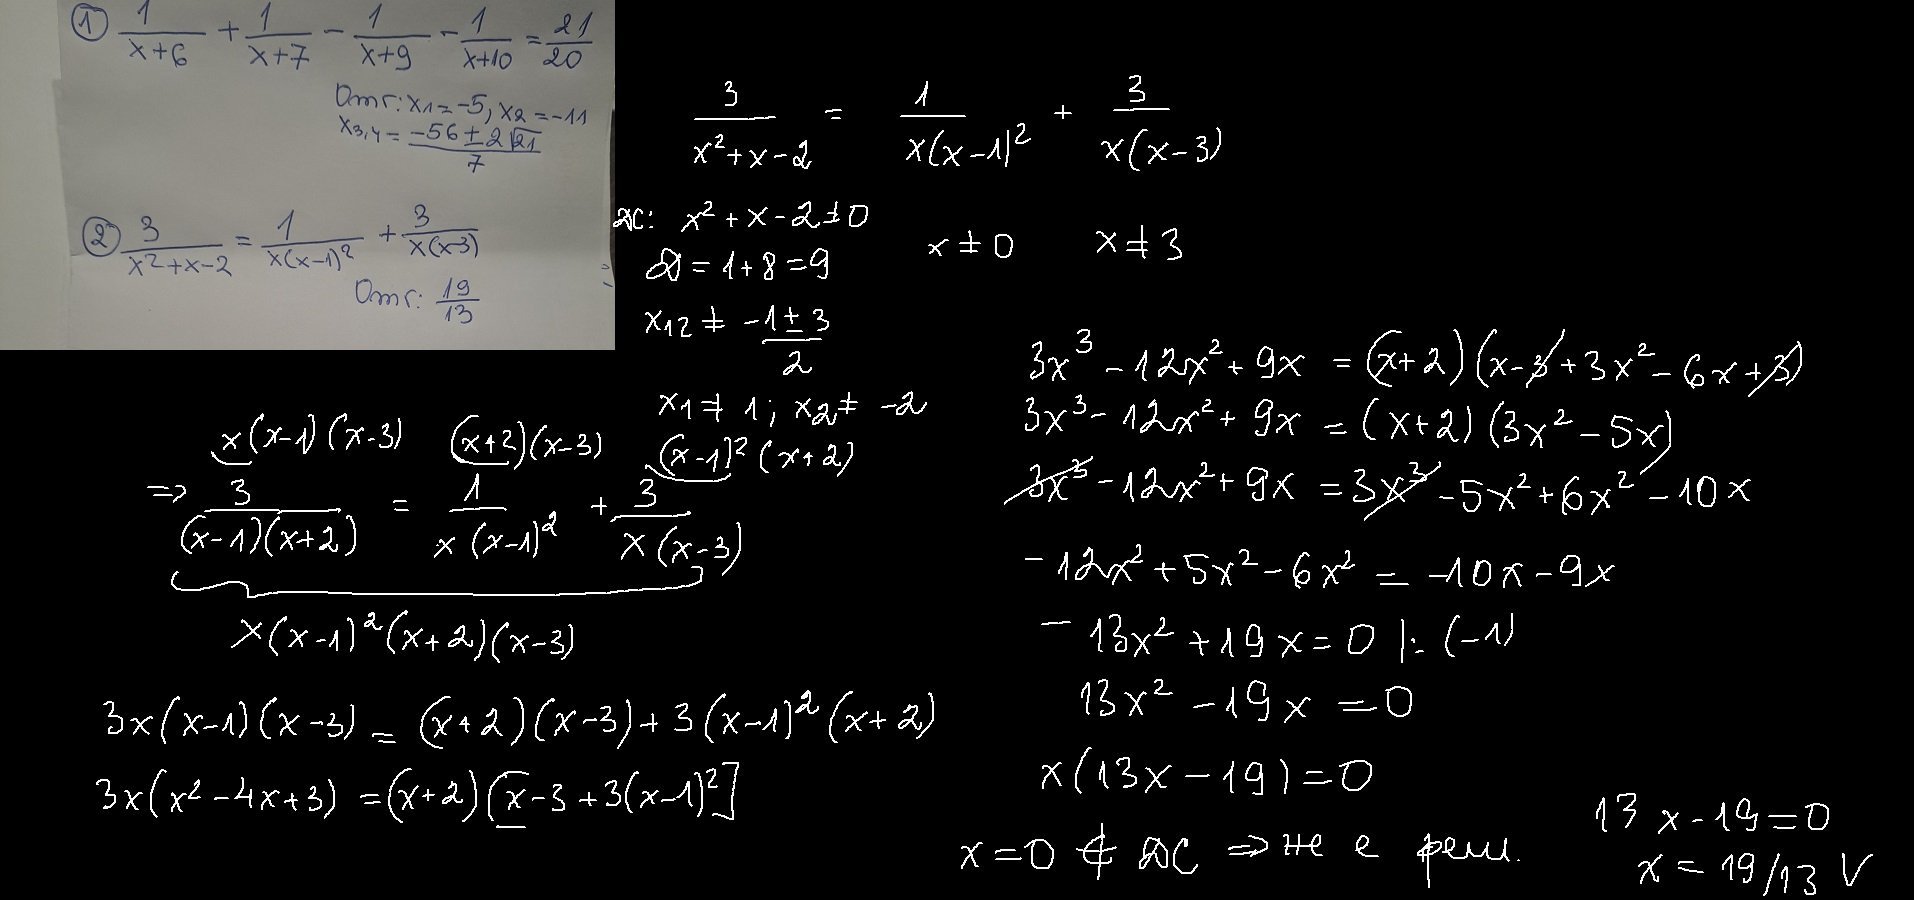 ① 1/(x+6) + 1/(x+7) - 1/(x+9) - 1/(x+10) = 21/20
Отг: x1 = -5, x2 = -11
x3,4 = (-56 ± 2√21)/7
② 3/(x²+x-2) = 1/(x(x-1)²) + 3/(x(x-3))
Отг: 19/13
3/(x²+x-2) = 1/(x(x-1)²) + 3/(x(x-3))
ДС: x²+x-2≠0 x≠0 x≠3
D = 1+8 = 9
x12 ≠ (-1±3)/2
x1 ≠ 1; x2 ≠ -2
x(x-1)(x-3) (x+2)(x-3) (x-1)²(x+2)
=> 3/((x-1)(x+2)) = 1/(x(x-1)²) + 3/(x(x-3))
x(x-1)²(x+2)(x-3)
3x(x-1)(x-3) = (x+2)(x-3)+3(x-1)²(x+2)
3x(x²-4x+3) = (x+2)[x-3+3(x-1)²]
3x³-12x²+9x = (x+2)(x-3+3x²-6x+3)
3x³-12x²+9x = (x+2)(3x²-5x)
3x³-12x²+9x = 3x³-5x²+6x²-10x
-12x²+5x²-6x² = -10x-9x
-13x²+19x=0 |:(-1)
13x²-19x=0
x(13x-19)=0
x=0 ∉ ДС => не е реш.
13x-19=0
x = 19/13 V